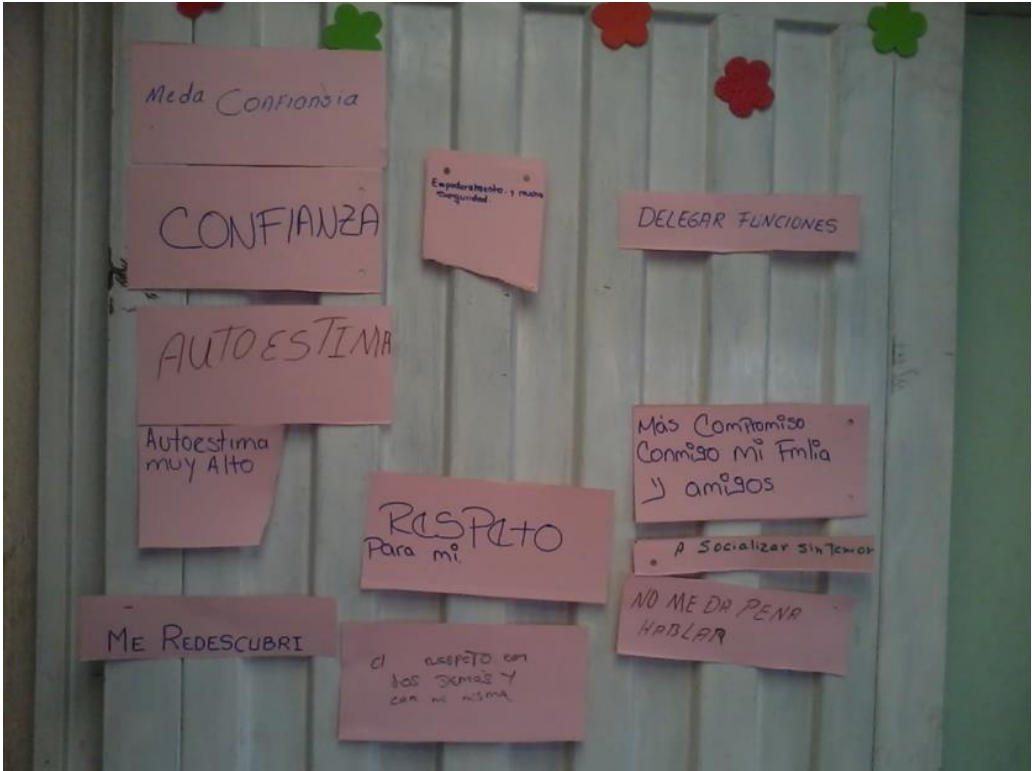 Me da Confiansia
CONFIANZA
AUTOESTIMA
Autoestima
muy Alto
ME REDESCUBRI
Empoderamiento y mucha
Seguridad.
RESPETO
Para mi
el respeto con
los demás y
con mi misma
DELEGAR FUNCIONES
Más Compromiso
Conmigo mi Fmlia
y amigos
A Socializar sin Temor
NO ME DA PENA
HABLAR